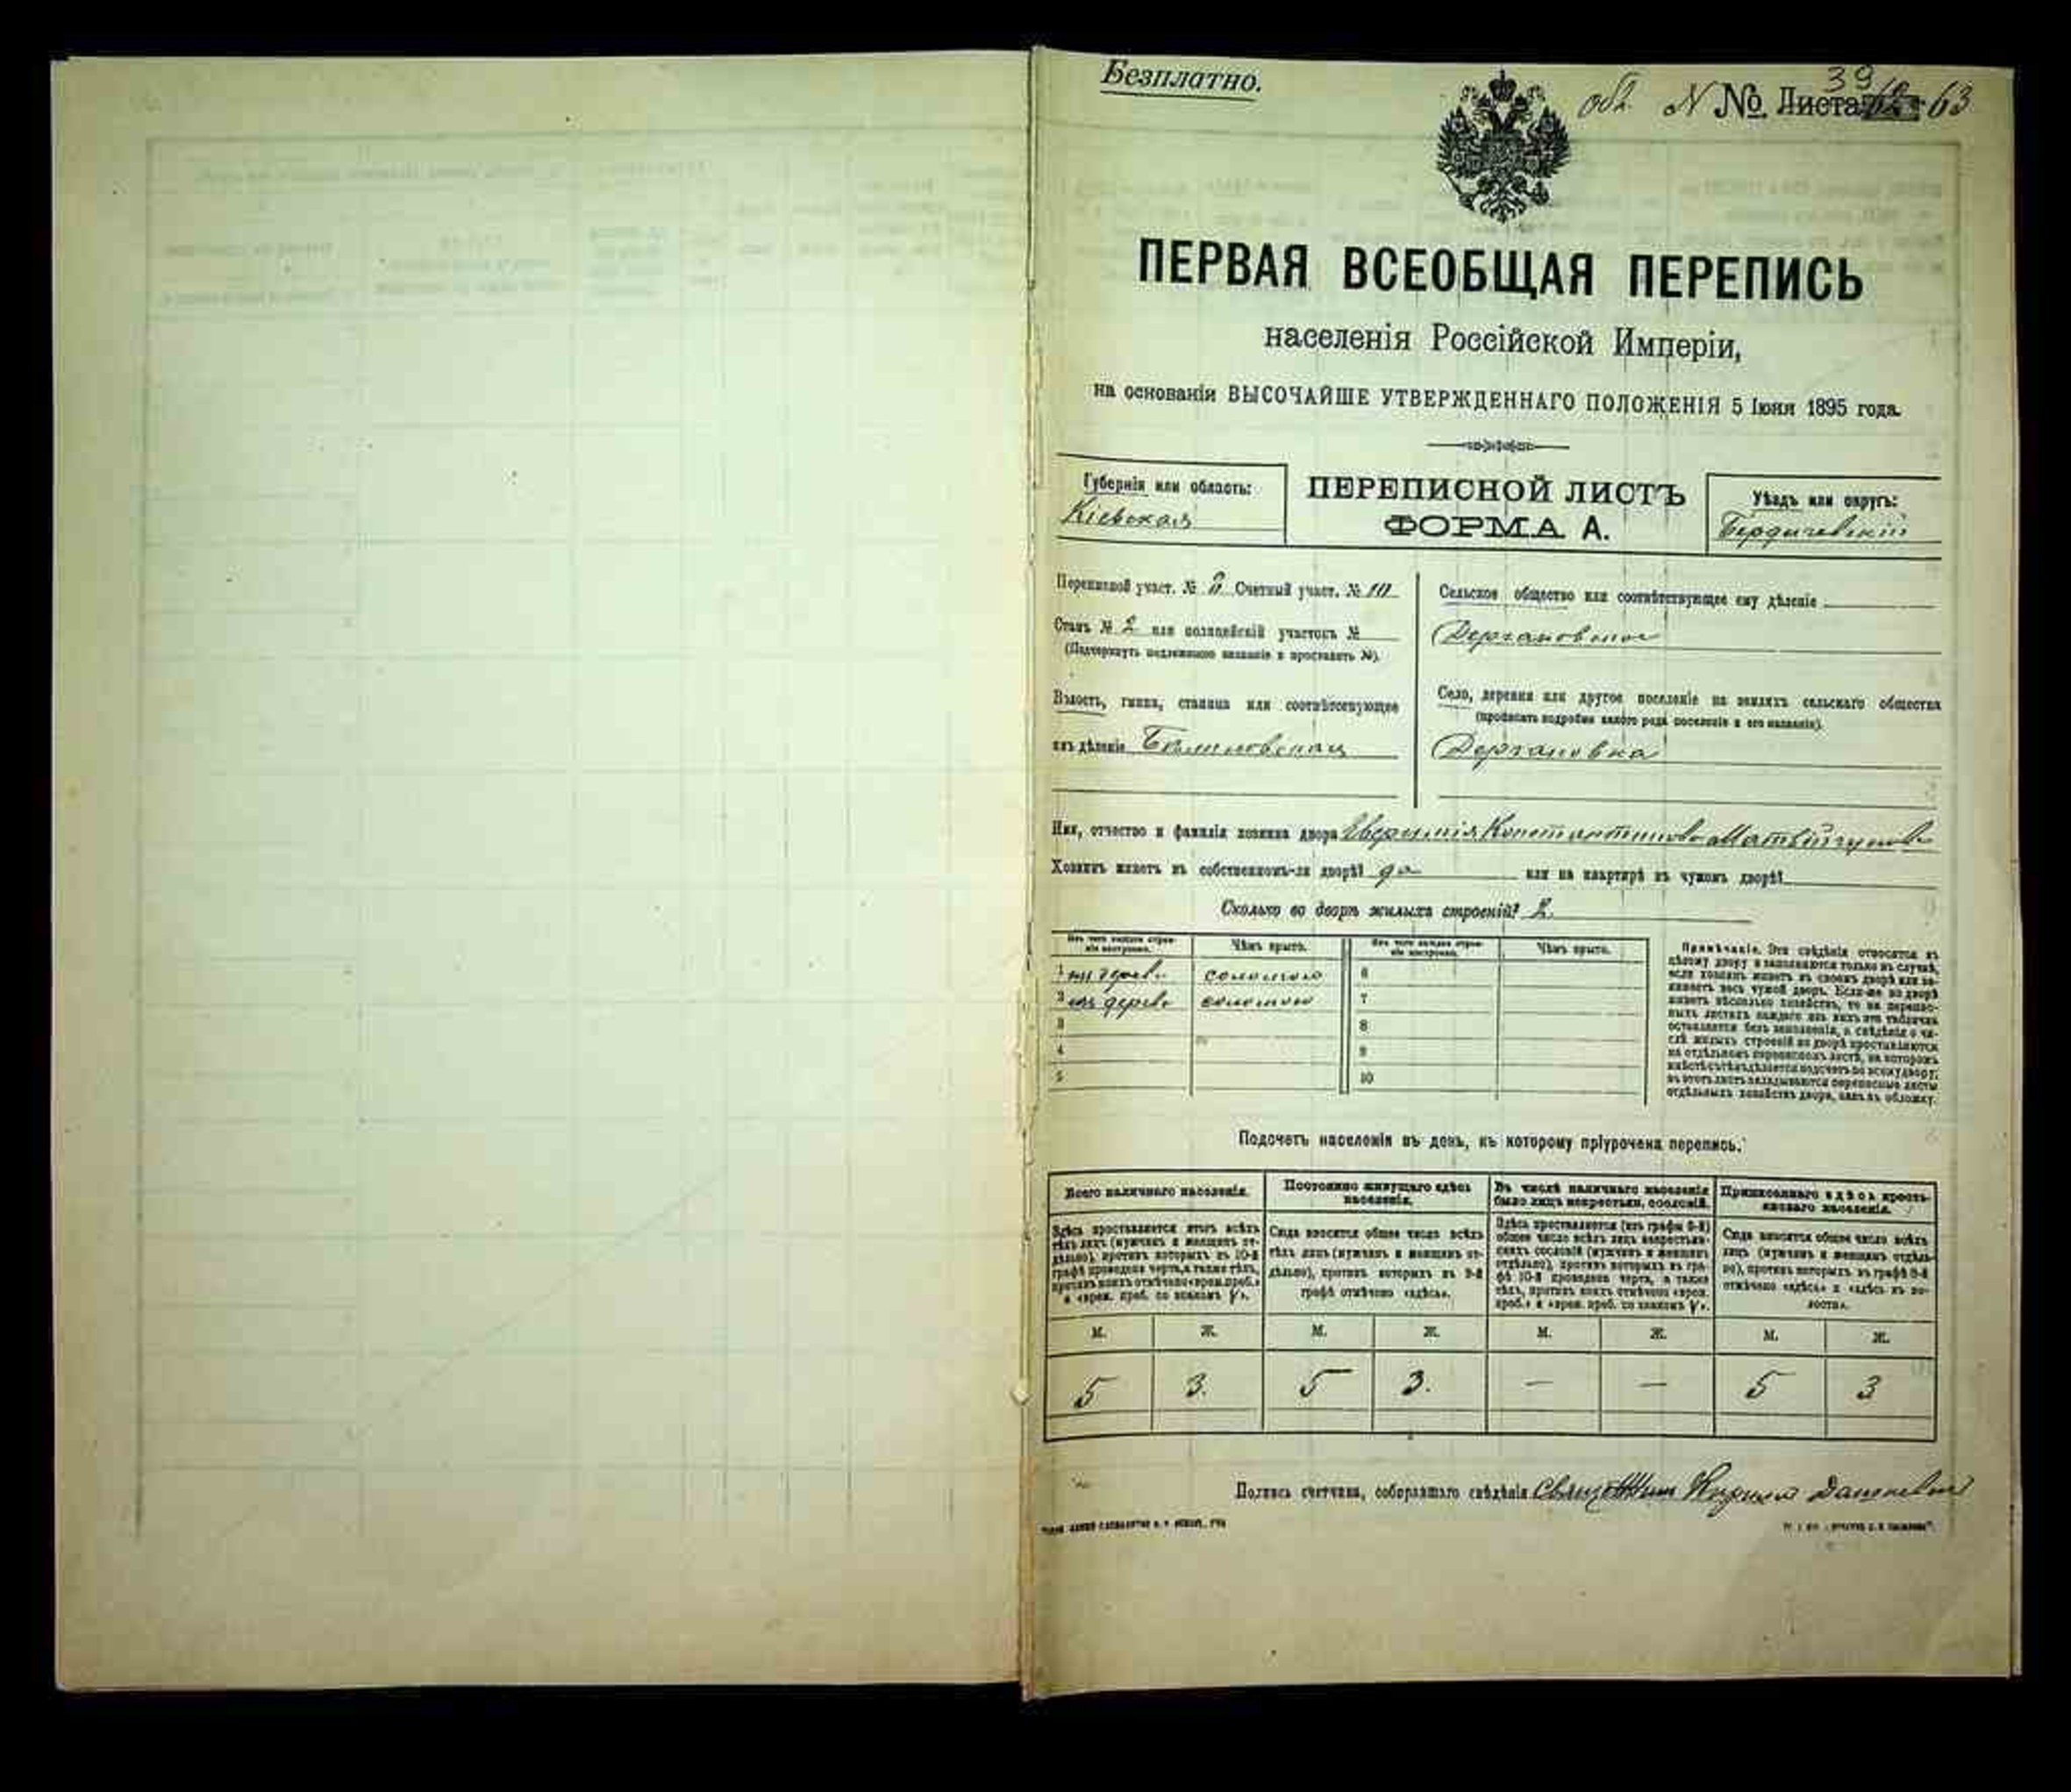 Безплатно.
№ Листа 39 63
ПЕРВАЯ ВСЕОБЩАЯ ПЕРЕПИСЬ
населенія Россійской Имперіи,
на основаніи ВЫСОЧАЙШЕ УТВЕРЖДЕННАГО ПОЛОЖЕНІЯ 5 Іюня 1895 года.
Губернія или область:
Кіевская
ПЕРЕПИСНОЙ ЛИСТЪ
ФОРМА А.
Уѣздъ или округъ:
Бердичевскій
Переписной участ. № Счетный участ. № 10
Станъ № 2 или полицейскій участокъ №
(Подчеркнуть надлежащее названіе и проставить №).
Волость, гмина, станица или соотвѣтствующее
имъ дѣленіе
Сельское общество или соотвѣтствующее ему дѣленіе
Дергановское
Село, деревня или другое поселеніе на земляхъ сельскаго общества
(прописать подробно какого рода поселеніе и его названіе).
Дергановка
Имя, отчество и фамилія хозяина двора
Хозяинъ живетъ въ собственномъ-ли дворѣ? да или на квартирѣ въ чужомъ дворѣ?
Сколько во дворѣ жилыхъ строеній? 2.
Изъ чего каждое строеніе построено. Чѣмъ крыто. Изъ чего каждое строеніе построено. Чѣмъ крыто.
1 изъ дерева соломою 6
2 изъ дерева соломою 7
3 8
4 9
5 10
Примѣчаніе. Эти свѣдѣнія относятся къ
цѣлому двору и заполняются только въ случаѣ,
если хозяинъ живетъ въ своемъ дворѣ или за-
нимаетъ весь чужой дворъ. Если-же во дворѣ
живетъ нѣсколько хозяйствъ, то на перепис-
ныхъ листахъ каждаго изъ нихъ эта табличка
оставляется безъ заполненія, а свѣдѣнія о чи-
слѣ жилыхъ строеній во дворѣ проставляются
на отдѣльномъ переписномъ листѣ, на которомъ
вмѣстѣ съ тѣмъ дѣлается подсчетъ по всему двору;
въ этотъ листъ вкладываются переписные листы
отдѣльныхъ хозяйствъ двора, какъ въ обложку.
Подсчетъ населенія въ день, къ которому пріурочена перепись.
Всего наличнаго населенія.
Здѣсь проставляется итогъ всѣхъ
тѣхъ лицъ (мужчинъ и женщинъ от-
дѣльно), противъ которыхъ въ 10-й
графѣ проведена черта, а также тѣхъ,
противъ коихъ отмѣчено «врем. преб.»
и «врем. преб. со знакомъ V».
Постоянно живущаго здѣсь
населенія.
Сюда вносится общее число всѣхъ
тѣхъ лицъ (мужчинъ и женщинъ от-
дѣльно), противъ которыхъ въ 9-й
графѣ отмѣчено «здѣсь».
Въ числѣ наличнаго населенія
было лицъ некрестьян. сословій.
Здѣсь проставляется (изъ графы 9-й)
общее число всѣхъ лицъ некрестьян-
скихъ сословій (мужчинъ и женщинъ
отдѣльно), противъ которыхъ въ гра-
фѣ 10-й проведена черта, а также
тѣхъ, противъ коихъ отмѣчено «врем.
преб.» и «врем. преб. со знакомъ V».
Приписаннаго здѣсь кресть-
янскаго населенія.
Сюда вносится общее число всѣхъ
лицъ (мужчинъ и женщинъ отдѣль-
но), противъ которыхъ въ графѣ 8-й
отмѣчено «здѣсь» и «здѣсь въ во-
лости».
М. Ж. М. Ж. М. Ж. М. Ж.
5 3. 5 3. — — 5 3
Подпись счетчика, собиравшаго свѣдѣнія